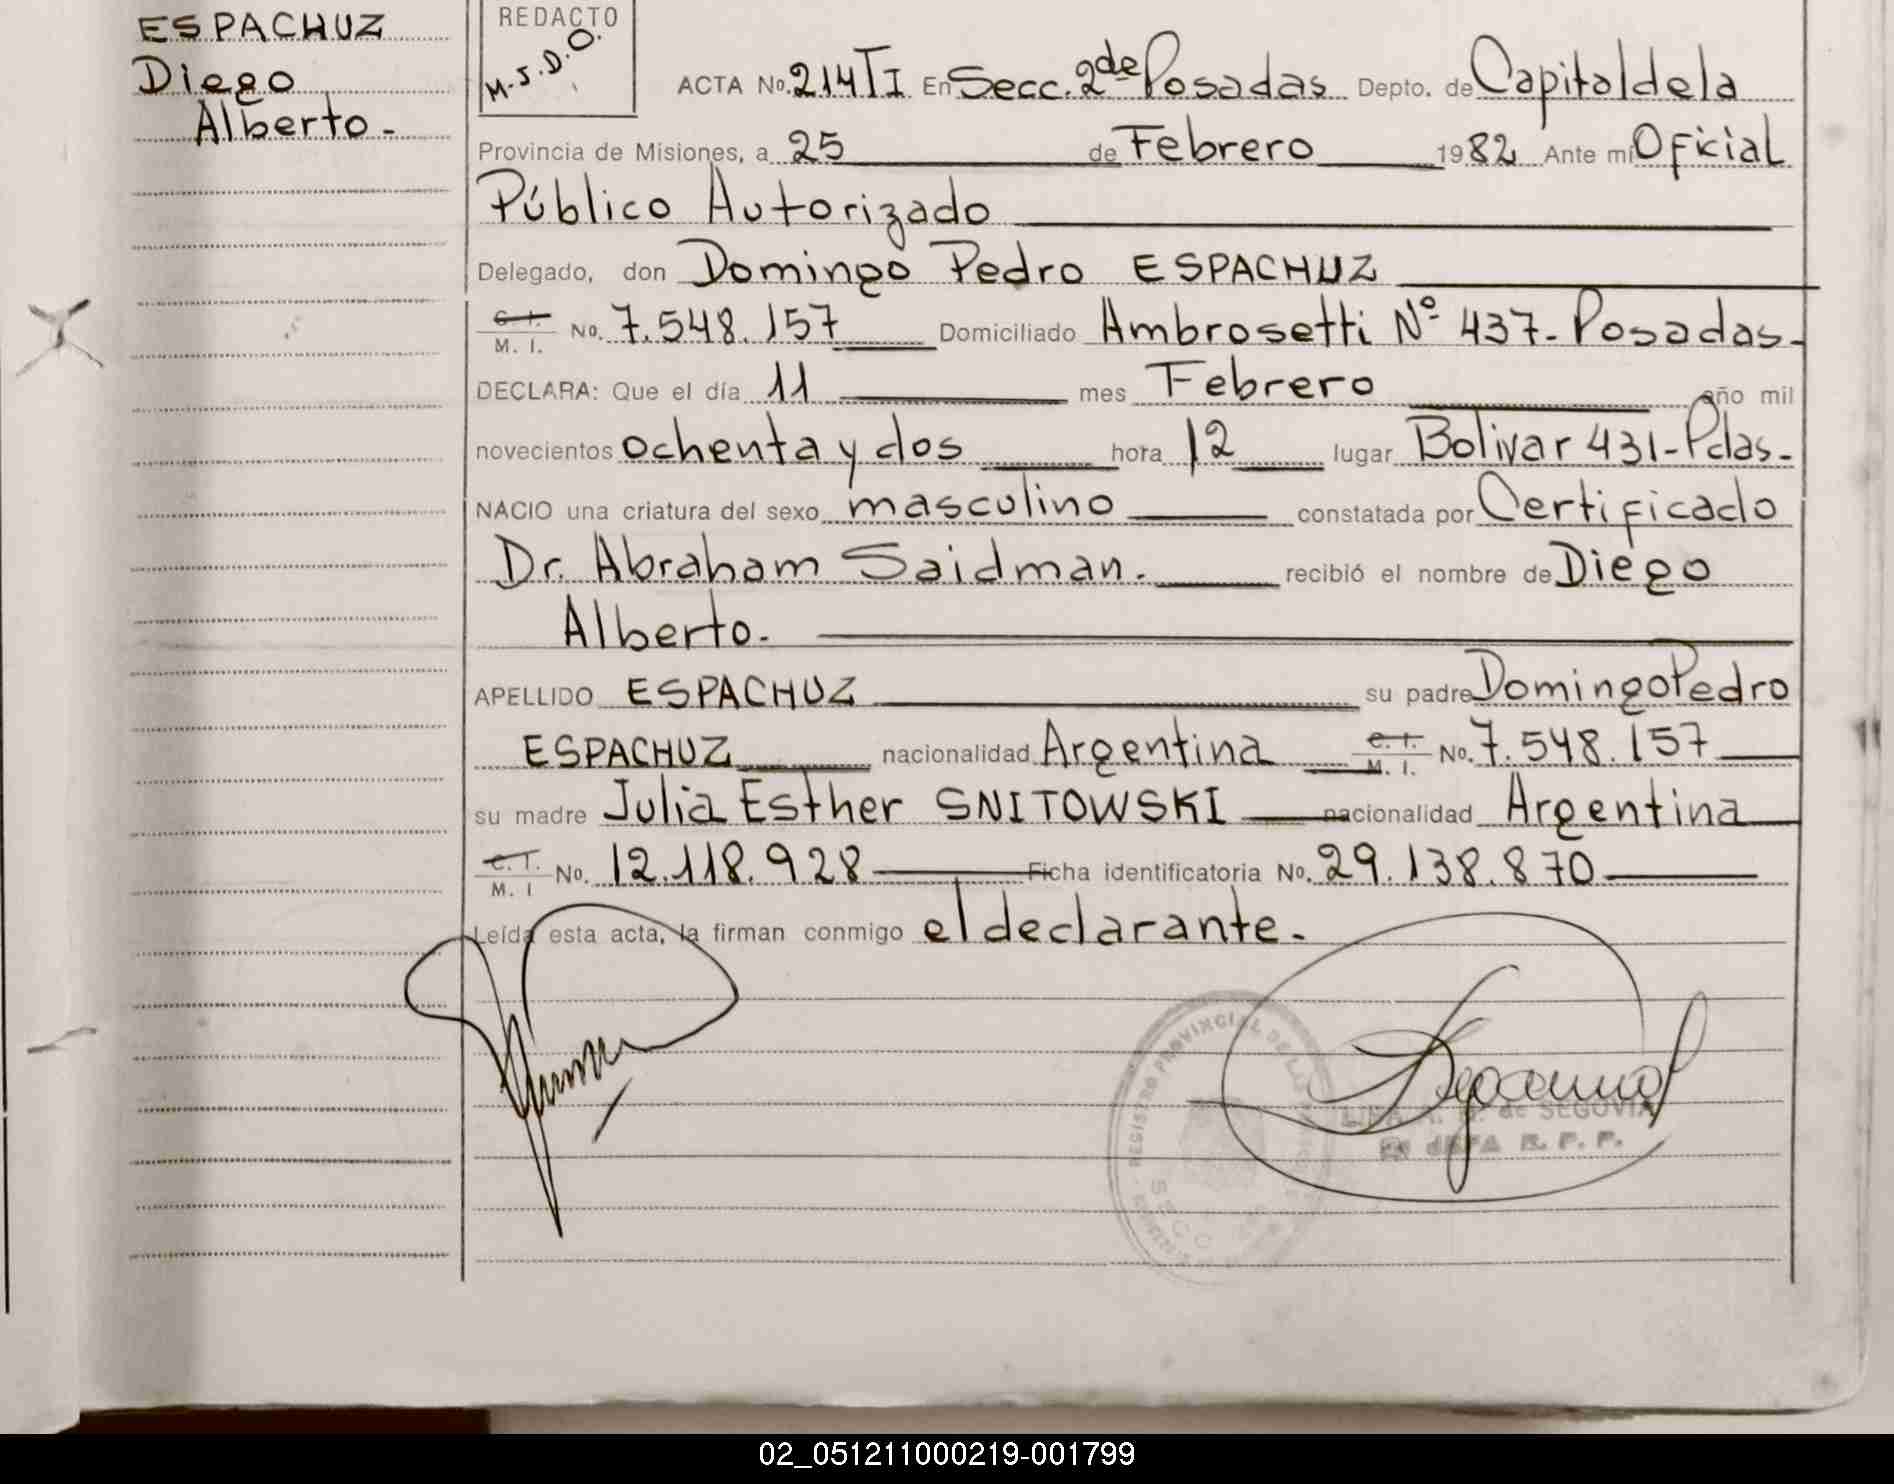 ESPACHUZ
Diego
Alberto -
REDACTO
M.S.D.O.
ACTA No. 214 TI En Secc. 2de Posadas Depto. de Capital de la
Provincia de Misiones, a 25 de Febrero 1982 Ante mí Oficial
Público Autorizado
Delegado, don Domingo Pedro ESPACHUZ
C. I.
M. I. No. 7.548.157 Domiciliado Ambrosetti Nº 437 - Posadas -
DECLARA: Que el día 11 mes Febrero año mil
novecientos ochenta y dos hora 12 lugar Bolivar 431 - Pdas -
NACIO una criatura del sexo masculino constatada por Certificado
Dr. Abraham Saidman. recibió el nombre de Diego
Alberto -
APELLIDO ESPACHUZ su padre Domingo Pedro
ESPACHUZ nacionalidad Argentina C. I. M. I. No. 7.548.157
su madre Julia Esther SNITOWSKI nacionalidad Argentina
C. I.
M. I No. 12.118.928 Ficha identificatoria No. 29.138.870
Leída esta acta, la firman conmigo el declarante -
REGISTRO PROVINCIAL DE LAS
de SEGOVIA
JEFA R. P. P.
02_051211000219-001799